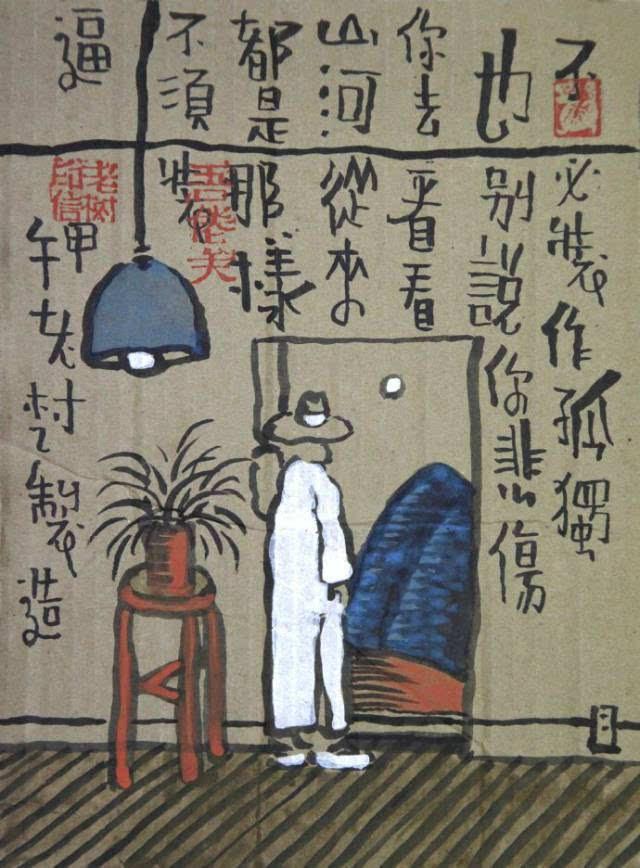 不必裝作孤獨
也别說你悲傷
你去看看
山河從來
都是那樣
不須裝
逼
甲午老村製造
老树
印信